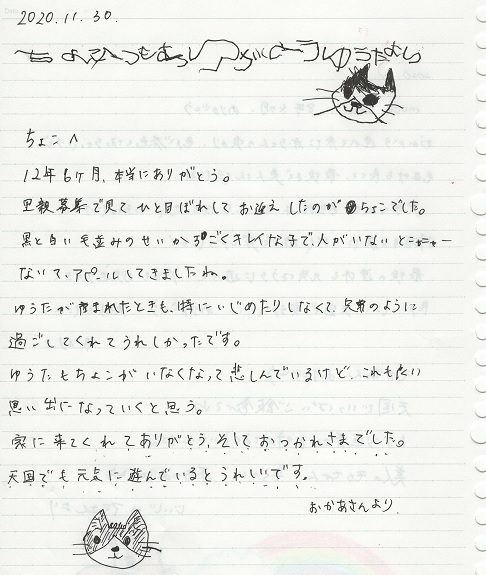 2020.11.30
ちょこへ
12年6ヶ月、本当にありがとう。
里親募集で見て ひと目ぼれして お迎え したのが ちょこでした。
黒と白い毛並みの せいか すごくキレイな子で 人がいないと ニャーニャー
ないて、アピールしてきましたね。
ゆうたが 産まれたときも、特に いじめたりしなくて、兄弟のように
過ごしてくれて うれしかったです。
ゆうたもちょこが いなくなって 悲しんでいるけど、これも良い
思い出に なっていくと思う。
家に来てくれて ありがとう、そして おつかれさまでした。
天国でも 元点に 遊んでいると うれしいです。
おかあさんより